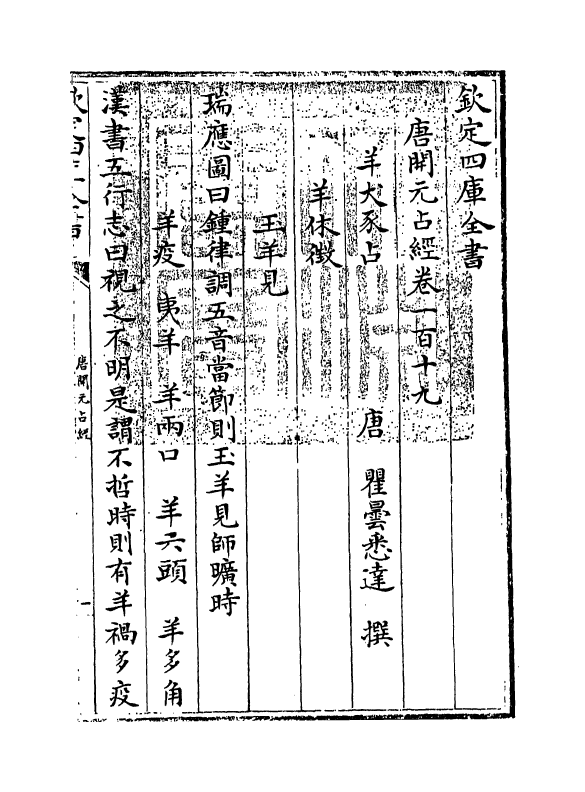 欽定四庫全書
唐開元占經卷一百十九
唐 瞿曇悉達 撰
羊犬豕占
羊休徴
玉羊見
瑞應圖曰鍾律調五音當節則玉羊見師曠時
羊疫 夷羊 羊兩口 羊六頭 羊多角
漢書五行志曰視之不明是謂不哲時則有羊禍多疫
唐開元占經
一